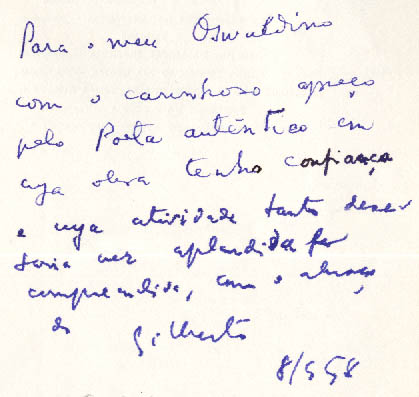 Para o meu Oswaldino
com o carinhoso apreço
pelo Poeta autêntico em
cuja obra tenho confiança
e cuja atividade tanto dese
jaria ver aplaudida e
compreendida, com o abraço
do Gilberto
8/5/58